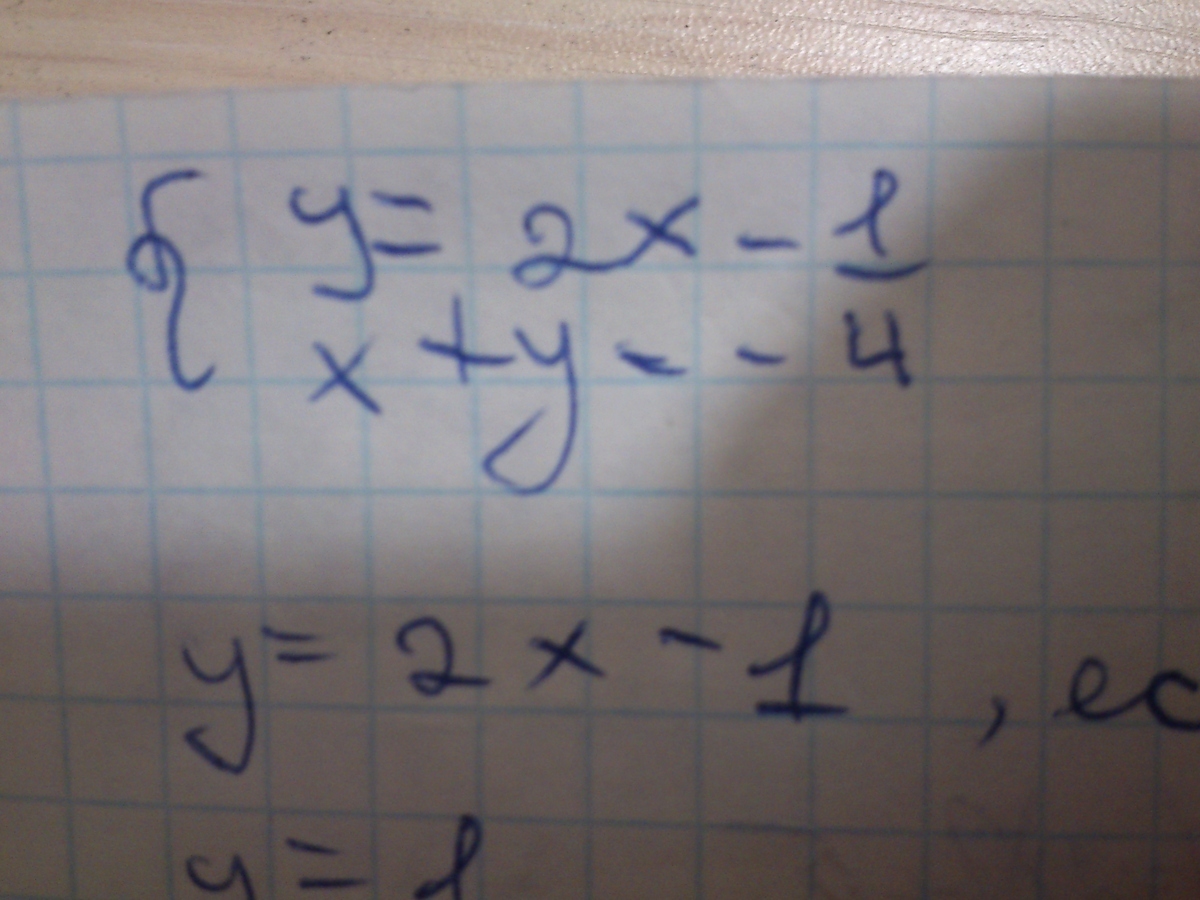 { y = 2x - 1
x + y = -4
y = 2x - 1 , ес
y = 1